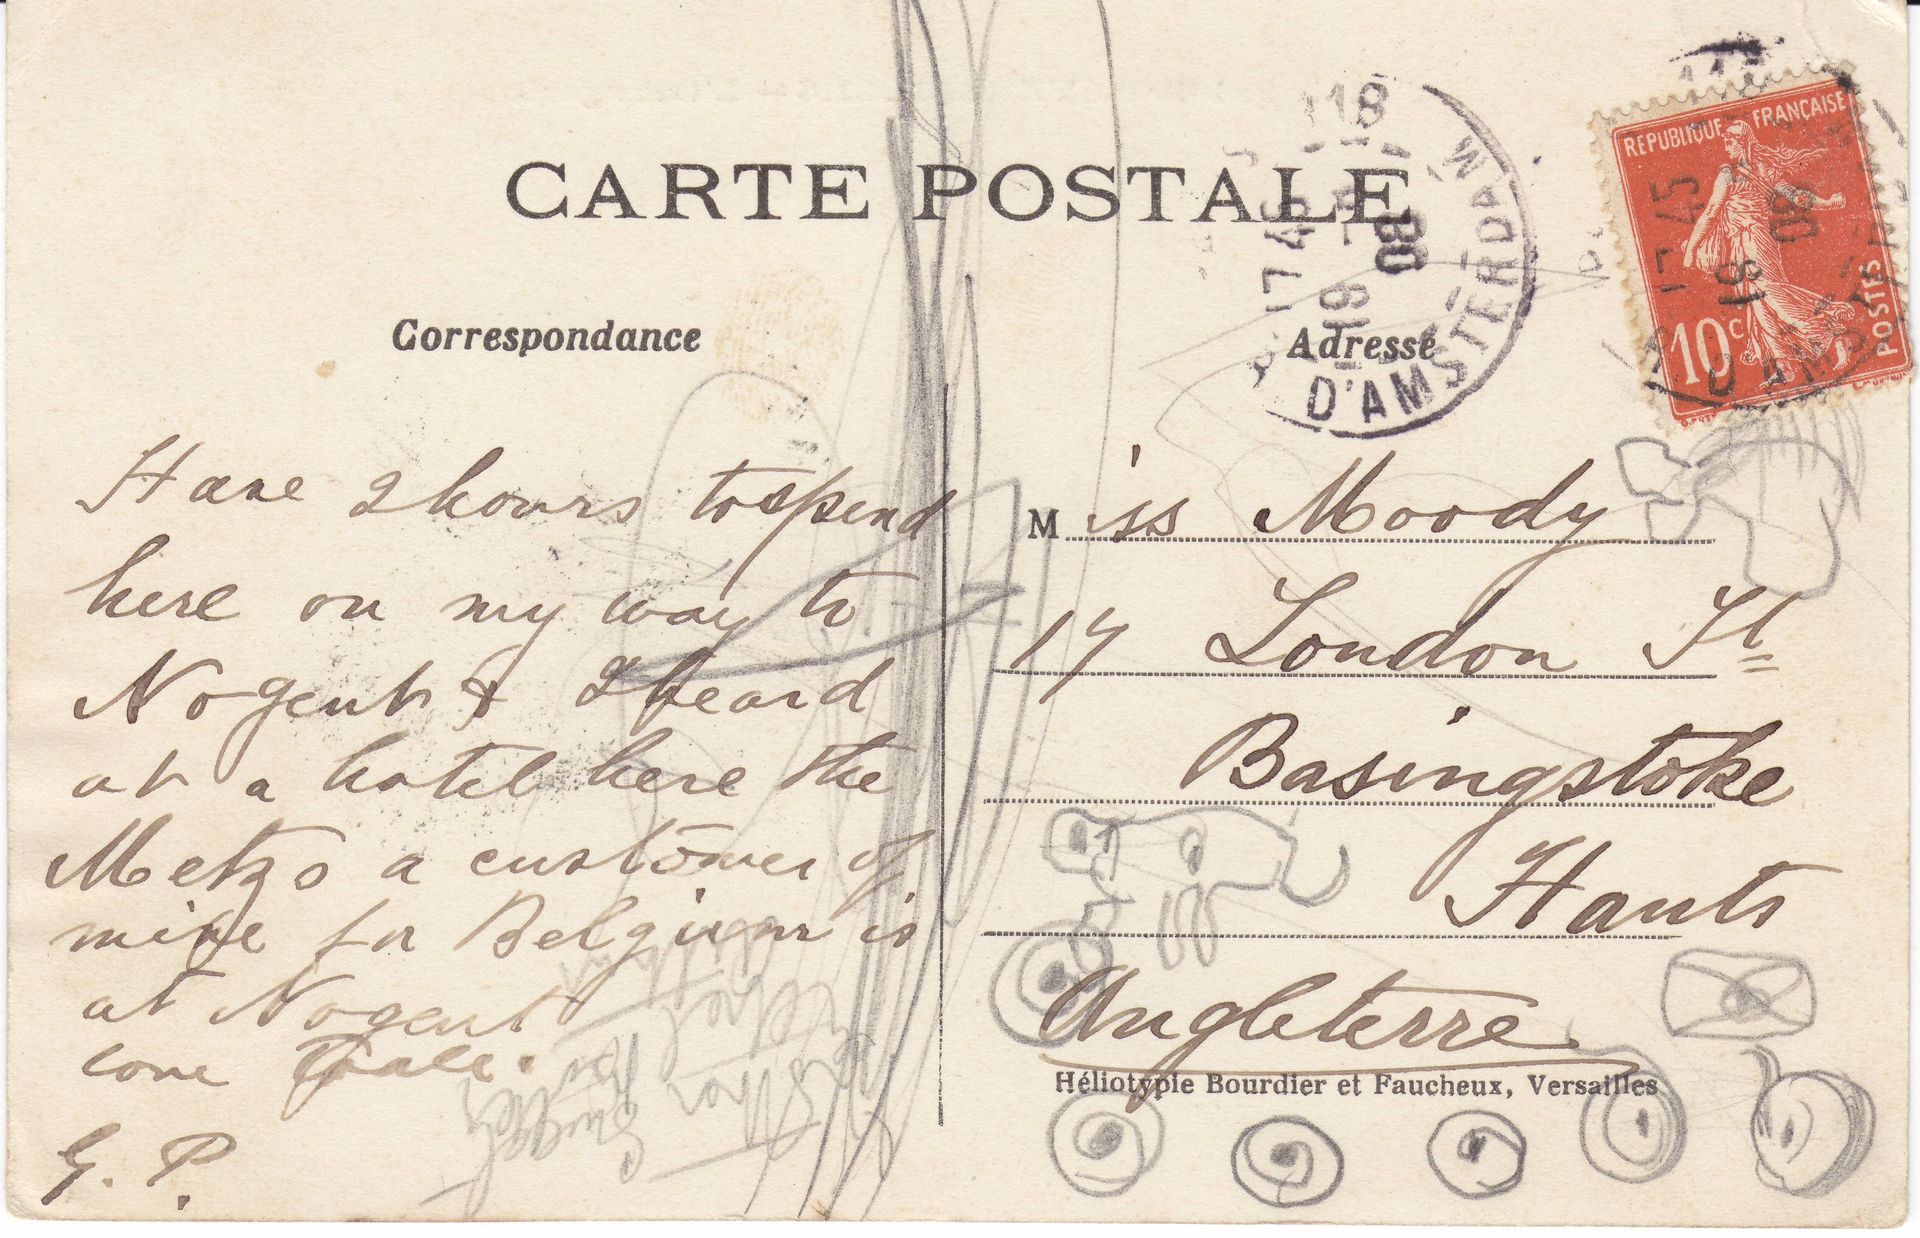 CARTE POSTALE
Correspondance
Adresse
118
17 45
19
80
D'AMSTERDAM
REPUBLIQUE FRANÇAISE
17 45
19
08
10c
POSTES
D'AMST
Have 2 hours to spend
here on my way to
Nogent & I heard
at a hotel here the
a customer of
mine for Belgium is
at Nogent
love
G. P.
Miss Moody
17 London St
Basingstoke
Hants
Angleterre
Héliotypie Bourdier et Faucheux, Versailles